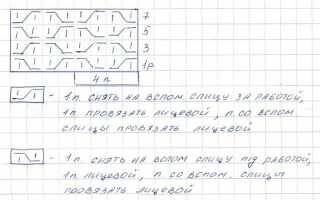 7
5
3
1р
4 п.
- 1 п. снять на вспом. спицу за работой,
1 п. провязать лицевой, п. со вспом
спицы провязать лицевой
- 1 п. снять на вспом спицу под работой,
1 п. лицевой, п. со вспом. спицы
провязать лицевой